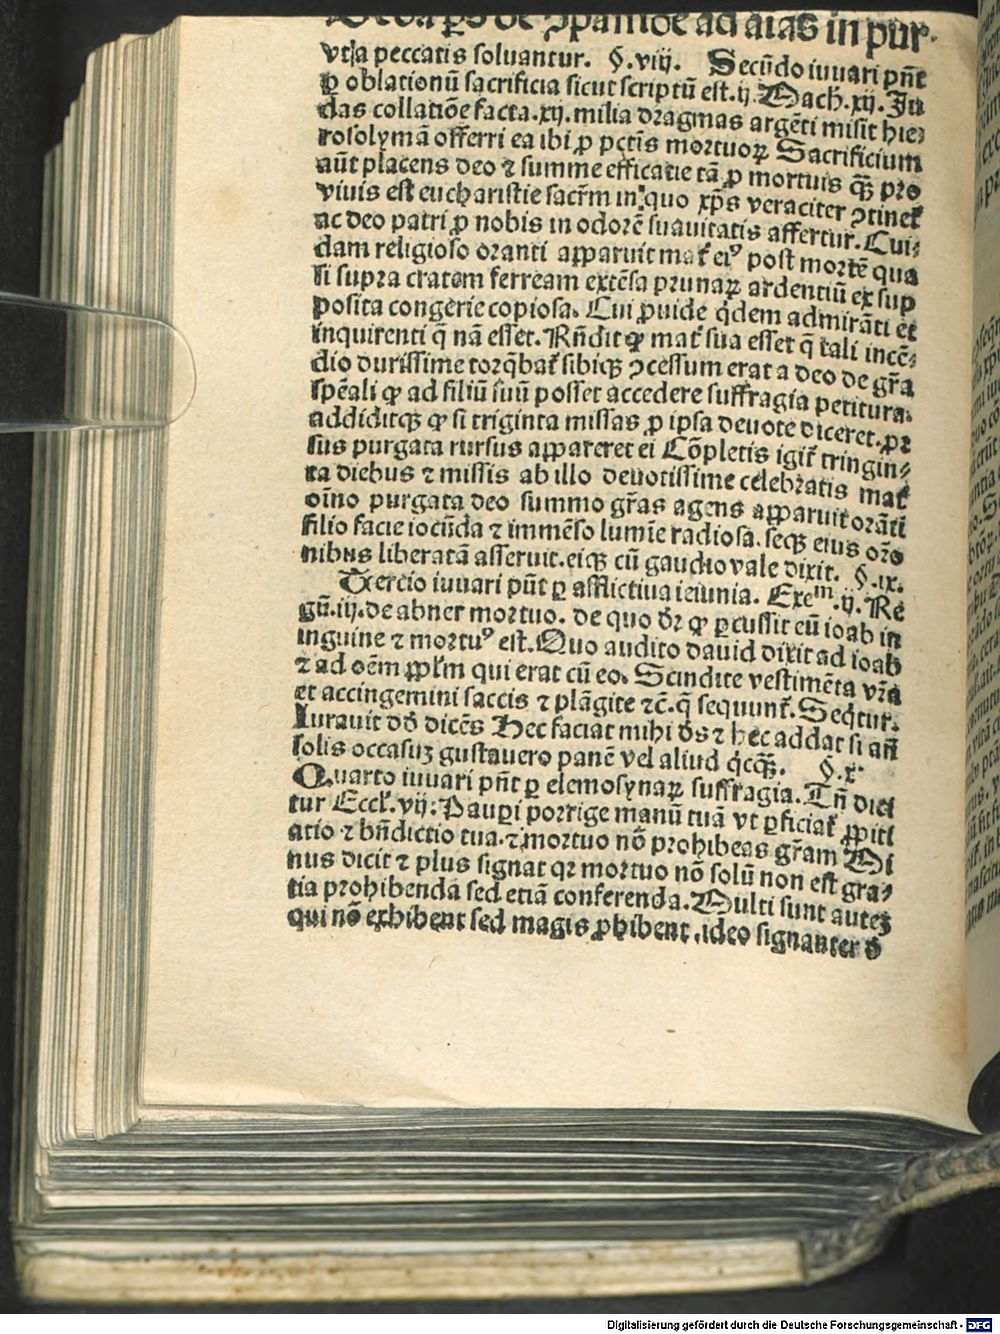 Secūda ꝑs de ↄpassiōe ad aīas in pur.
vt a peccatis soluantur. §.viij. Secūdo iuuari pn̄t
ꝑ oblationū sacrificia sicut scriptū est.ij.Mach.xij.Ju
das collatiōe facta.xij.milia dragmas argēti misit hie⸗
rosolymā offerri ea ibi ꝓ pctīs mortuoꝝ Sacrificium
aūt placens deo ⁊ summe efficatie tā ꝓ mortuis ꝙ̄ꝫ pro
viuis est eucharistie sacr̄m in quo xp̄s veraciter ↄtinet̄
ac deo patri ꝓ nobis in odorē suauitatis affertur.Cui⸗
dam religioso oranti apparuit mat̄ eiꝰ post mortē qua
si supra cratem ferream extēsa prunaꝝ ardentiū ex sup
posita congerie copiosa. Cui ꝓuide q̇dem admirāti et
inquirenti q̄ nā esset.Rn̄dit ꝙ mat̄ sua esset q̄ tali incē⸗
dio durissime torq̄bat̄ sibiqꝫ ↄcessum erat a deo de gr̄a
sp̄eali ꝙ ad filiū suū posset accedere suffragia petitura.
addiditqꝫ ꝙ si triginta missas ꝓ ipsa deuote diceret.pr
sus purgata rursus appareret ei Cōpletis igit̄ tringin⸗
ta diebus ⁊ missis ab illo deuotissime celebratis mat̄
oīno purgata deo summo gr̄as agens apparuit orāti
filio facie iocūda ⁊ immēso lumīe radiosa.seqꝫ eius orō
nibus liberatā asseruit.eiqꝫ cū gaudio vale dixit. §.ix.
Tercio iuuari pn̄t ꝑ afflictiua ieiunia. Exeᵐ.ij.Re
gū.iij.de abner mortuo. de quo dr̄ ꝙ ꝑcussit eū ioab in
inguine ⁊ mortuꝰ est.Quo audito dauid dixit ad ioab
⁊ ad oēm ppl̄m qui erat cū eo. Scindite vestimēta vr̄a
et accingemini saccis ⁊ plāgite ⁊c̄.q̄ sequunt̄.Seq̄tur.
Iurauit dd̄ dicēs Hec faciat mihi ds̄ ⁊ hec addat si an̄
solis occasuꝫ gustauero panē vel aliud q̇cqꝫ. §.x.
Quarto iuuari pn̄t ꝑ elemosynaꝝ suffragia.Tn̄ dici
tur Eccl̄.vij:Pauꝑi porrige manū tuā vt ꝑficiat̄ ꝓpiti
atio ⁊ bn̄dictio tua.⁊ mortuo nō prohibeas gr̄am Mi
nus dicit ⁊ plus signat qꝛ mortuo nō solū non est gra⸗
tia prohibenda sed etiā conferenda.Multi sunt autez
qui nō exhibent sed magis ꝓhibent.ideo signanter d̄
Digitalisierung gefördert durch die Deutsche Forschungsgemeinschaft - DFG